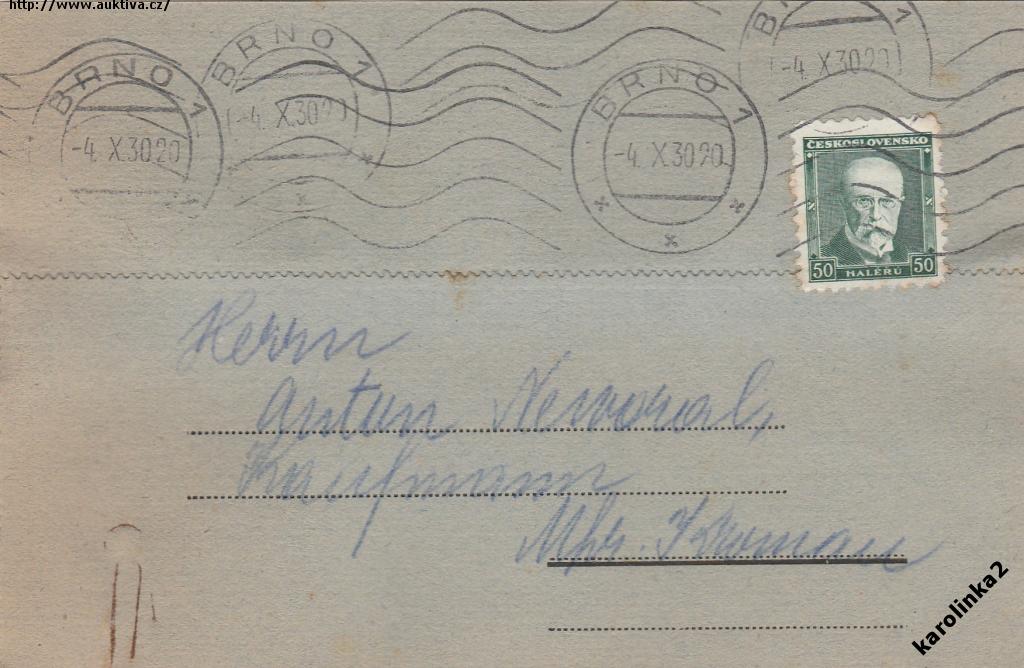 http://www.auktiva.cz/
BRNO 1
-4.X.30 20
BRNO 1
-4.X.30
BRNO 1
-4.X.30 20
BRNO 1
-4.X.30 20
ČESKOSLOVENSKO
50 HALÉŘŮ 50
Herrn
Anton
Kaufmann
Mhr. Kromau
karolinka2